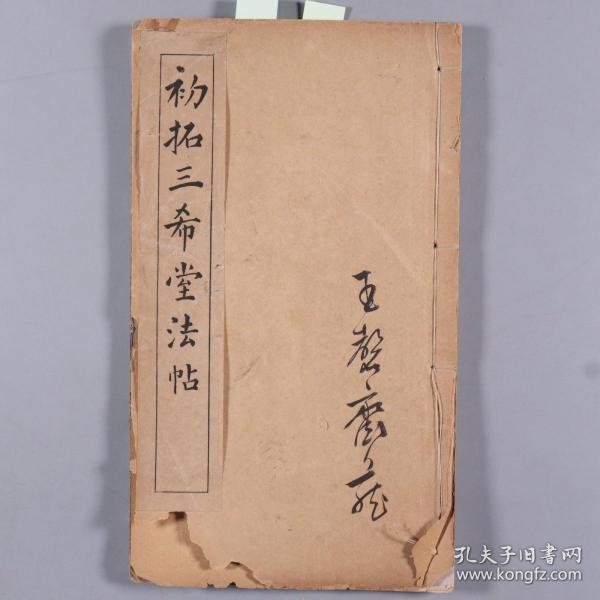 初拓三希堂法帖
王
孔夫子旧书网
www.kongfz.com